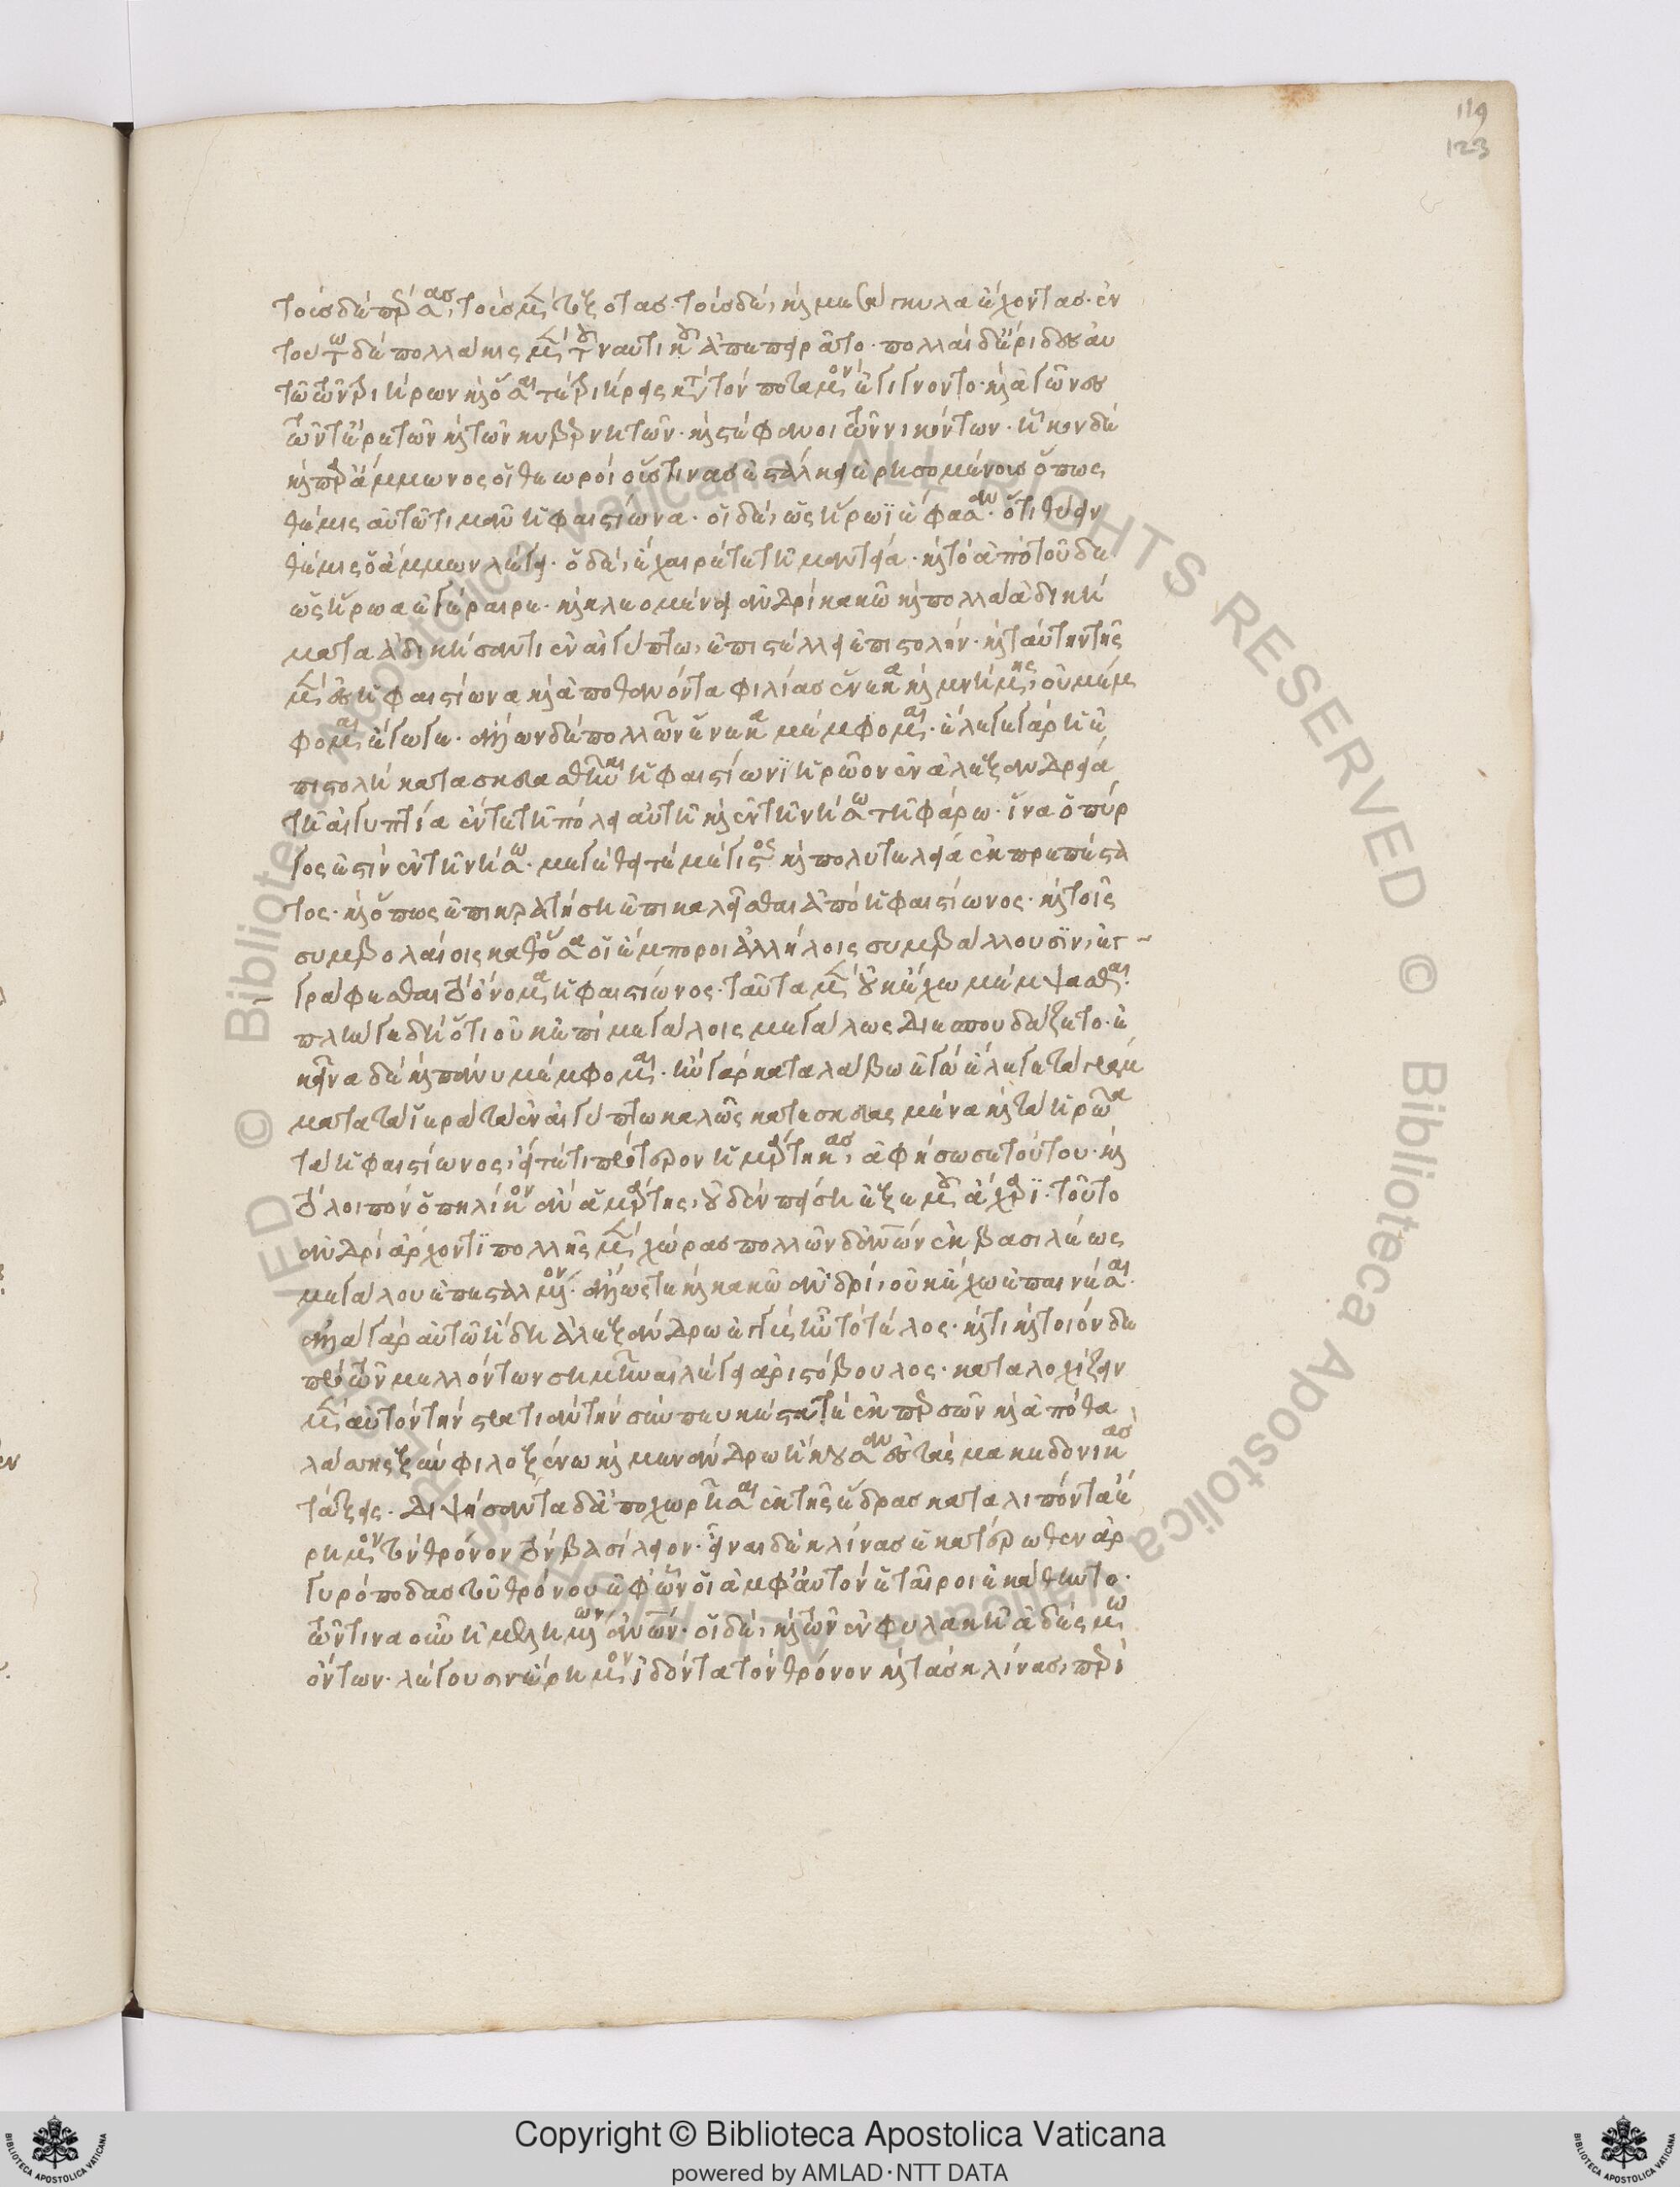 τοὺς δὲ πέρσας, τοὺς μὲν τοξότας. τοὺς δὲ, καὶ μεσάγκυλα ἔχοντας. ἐν
τούτω δὲ πολλάκις μὲν τοῦ ναυτικοῦ ἀπεπειρᾶτο. πολλαὶ δ' ἔριδες αὐ
τῶ τῶν τριήρων καὶ ὅσαι τετρήρεις κατὰ τὸν ποταμὸν ἐγίγνοντο. καὶ ἀγῶνες
τῶν τε ἐρετῶν καὶ τῶν κυβερνητῶν. καὶ στέφανοι τῶν νικώντων. ἧκον δὲ
καὶ παρὰ ἄμμωνος οἱ θεωροὶ οὕστινας ἐστάλκει ἐρησομένους ὅπως
θέμις αὐτῶ τιμᾶν ἡφαιστίωνα. οἱ δὲ, ὡς ἥρωϊ ἔφασαν. ὅτι θύειν
θέμις ὁ ἄμμων λέγει. ὁ δὲ, ἔχαιρέ τε τῆ μαντεία. καὶ τὸ ἀπὸ τοῦδε
ὡς ἥρωα ἐγέραιρε. καὶ κλεομένει ἀνδρὶ κακῶ καὶ πολλὰ ἀδική
ματα ἀδικήσαντι ἐν αἰγύπτω, ἐπιστέλλει ἐπιστολήν. καὶ ταύτην τῆς
μὲν ἐς ἡφαιστίωνα καὶ ἀποθανόντα φιλίας ἕνεκα καὶ μνήμης, οὐ μέμ
φομαι ἔγωγε. ἄλλων δὲ πολλῶν ἕνεκα μέμφομαι. ἔλεγε γὰρ ἡ ἐ
πιστολὴ κατασκευασθῆναι ἡφαιστίωνϊ ἡρῶον ἐν ἀλεξανδρεία
τῆ αἰγυπτία ἔν τε τῆ πόλει αὐτῆ καὶ ἐν τῆ νήσω τῆ φάρω. ἵνα ὁ πύρ
γος ἐστὶν ἐν τῆ νήσω. μεγέθει τε μέγιστος καὶ πολυτελεία ἐκπρεπέστα
τος. καὶ ὅπως ἐπικρατήση ἐπικαλεῖσθαι ἀπὸ ἡφαιστίωνος. καὶ τοῖς
συμβολαίοις καθ' ὅσα οἱ ἔμποροι ἀλλήλοις συμβάλλουσϊν, ἐγ-
γράφεσθαι τὸ ὄνομα ἡφαιστίωνος. ταῦτα μὲν οὐκ ἔχω μέμψασθαι.
πλήν γε δὴ ὅτι οὐκ ἐπὶ μεγάλοις μεγάλως διεσπουδάζετο. ἐ
κεῖνα δὲ καὶ πάνυ μέμφομαι. ἢν γὰρ καταλάβω ἐγὼ ἔλεγε τὰ γράμ
ματα τὰ ἱερὰ τὰ ἐν αἰγύπτω καλῶς κατεσκευασμένα καὶ τὰ ἡρῶα
τὰ ἡφαιστίωνος, εἴτέ τι πρότερον ἡμάρτηκας, ἀφήσω σε τούτου. καὶ
τὸ λοιπὸν ὁπηλίκον ἂν ἁμάρτης, οὐδὲν πείση ἐξ ἐμοῦ ἄχαρϊ. τοῦτο
ἀνδρὶ ἄρχοντϊ πολλῆς μὲν χώρας πολλῶν δ' ἀνθρώπων ἐκ βασιλέως
μεγάλου ἐπεσταλμένον. ἄλλως τε καὶ κακῶ ἀνδρὶ, οὐκ ἔχω ἐπαινέσαι.
ἀλλὰ γὰρ αὐτῶ ἤδη ἀλεξάνδρω ἐγγὺς ἦν τὸ τέλος. καί τι καὶ τοιόνδε
πρὸ τῶν μελλόντων σημῆναι λέγει ἀριστόβουλος. καταλοχίζειν
μὲν αὐτὸν τὴν στρατιὰν τὴν σὺν πευκέστα τὲ ἐκ περσῶν καὶ ἀπὸ θα
λάσσης ξὺν φιλοξένω καὶ μενάνδρω ἥκουσαν ἐς τὰς μακεδονικὰς
τάξεις. διψήσαντα δ' ἀποχωρῆσαι ἐκ τῆς ἕδρας καταλιπόντα ἔ
ρημον τὸν θρόνον τὸν βασίλειον. εἶναι δὲ κλίνας ἑκατέρωθεν ἀρ
γυρόποδας τοῦ θρόνου ἐφ' ὧν οἱ ἀμφ' αὐτὸν ἑταῖροι ἐκάθηντο.
τῶν τινα οὖν ἠμελημένων ἀνθρώπων. οἱ δὲ, καὶ τῶν ἐν φυλακῆ ἀδέσμω
ὄντων. λέγουσιν ἔρημον ἰδόντα τὸν θρόνον καὶ τὰς κλίνας, περὶ
119
123
Copyright © Biblioteca Apostolica Vaticana
powered by AMLAD·NTT DATA